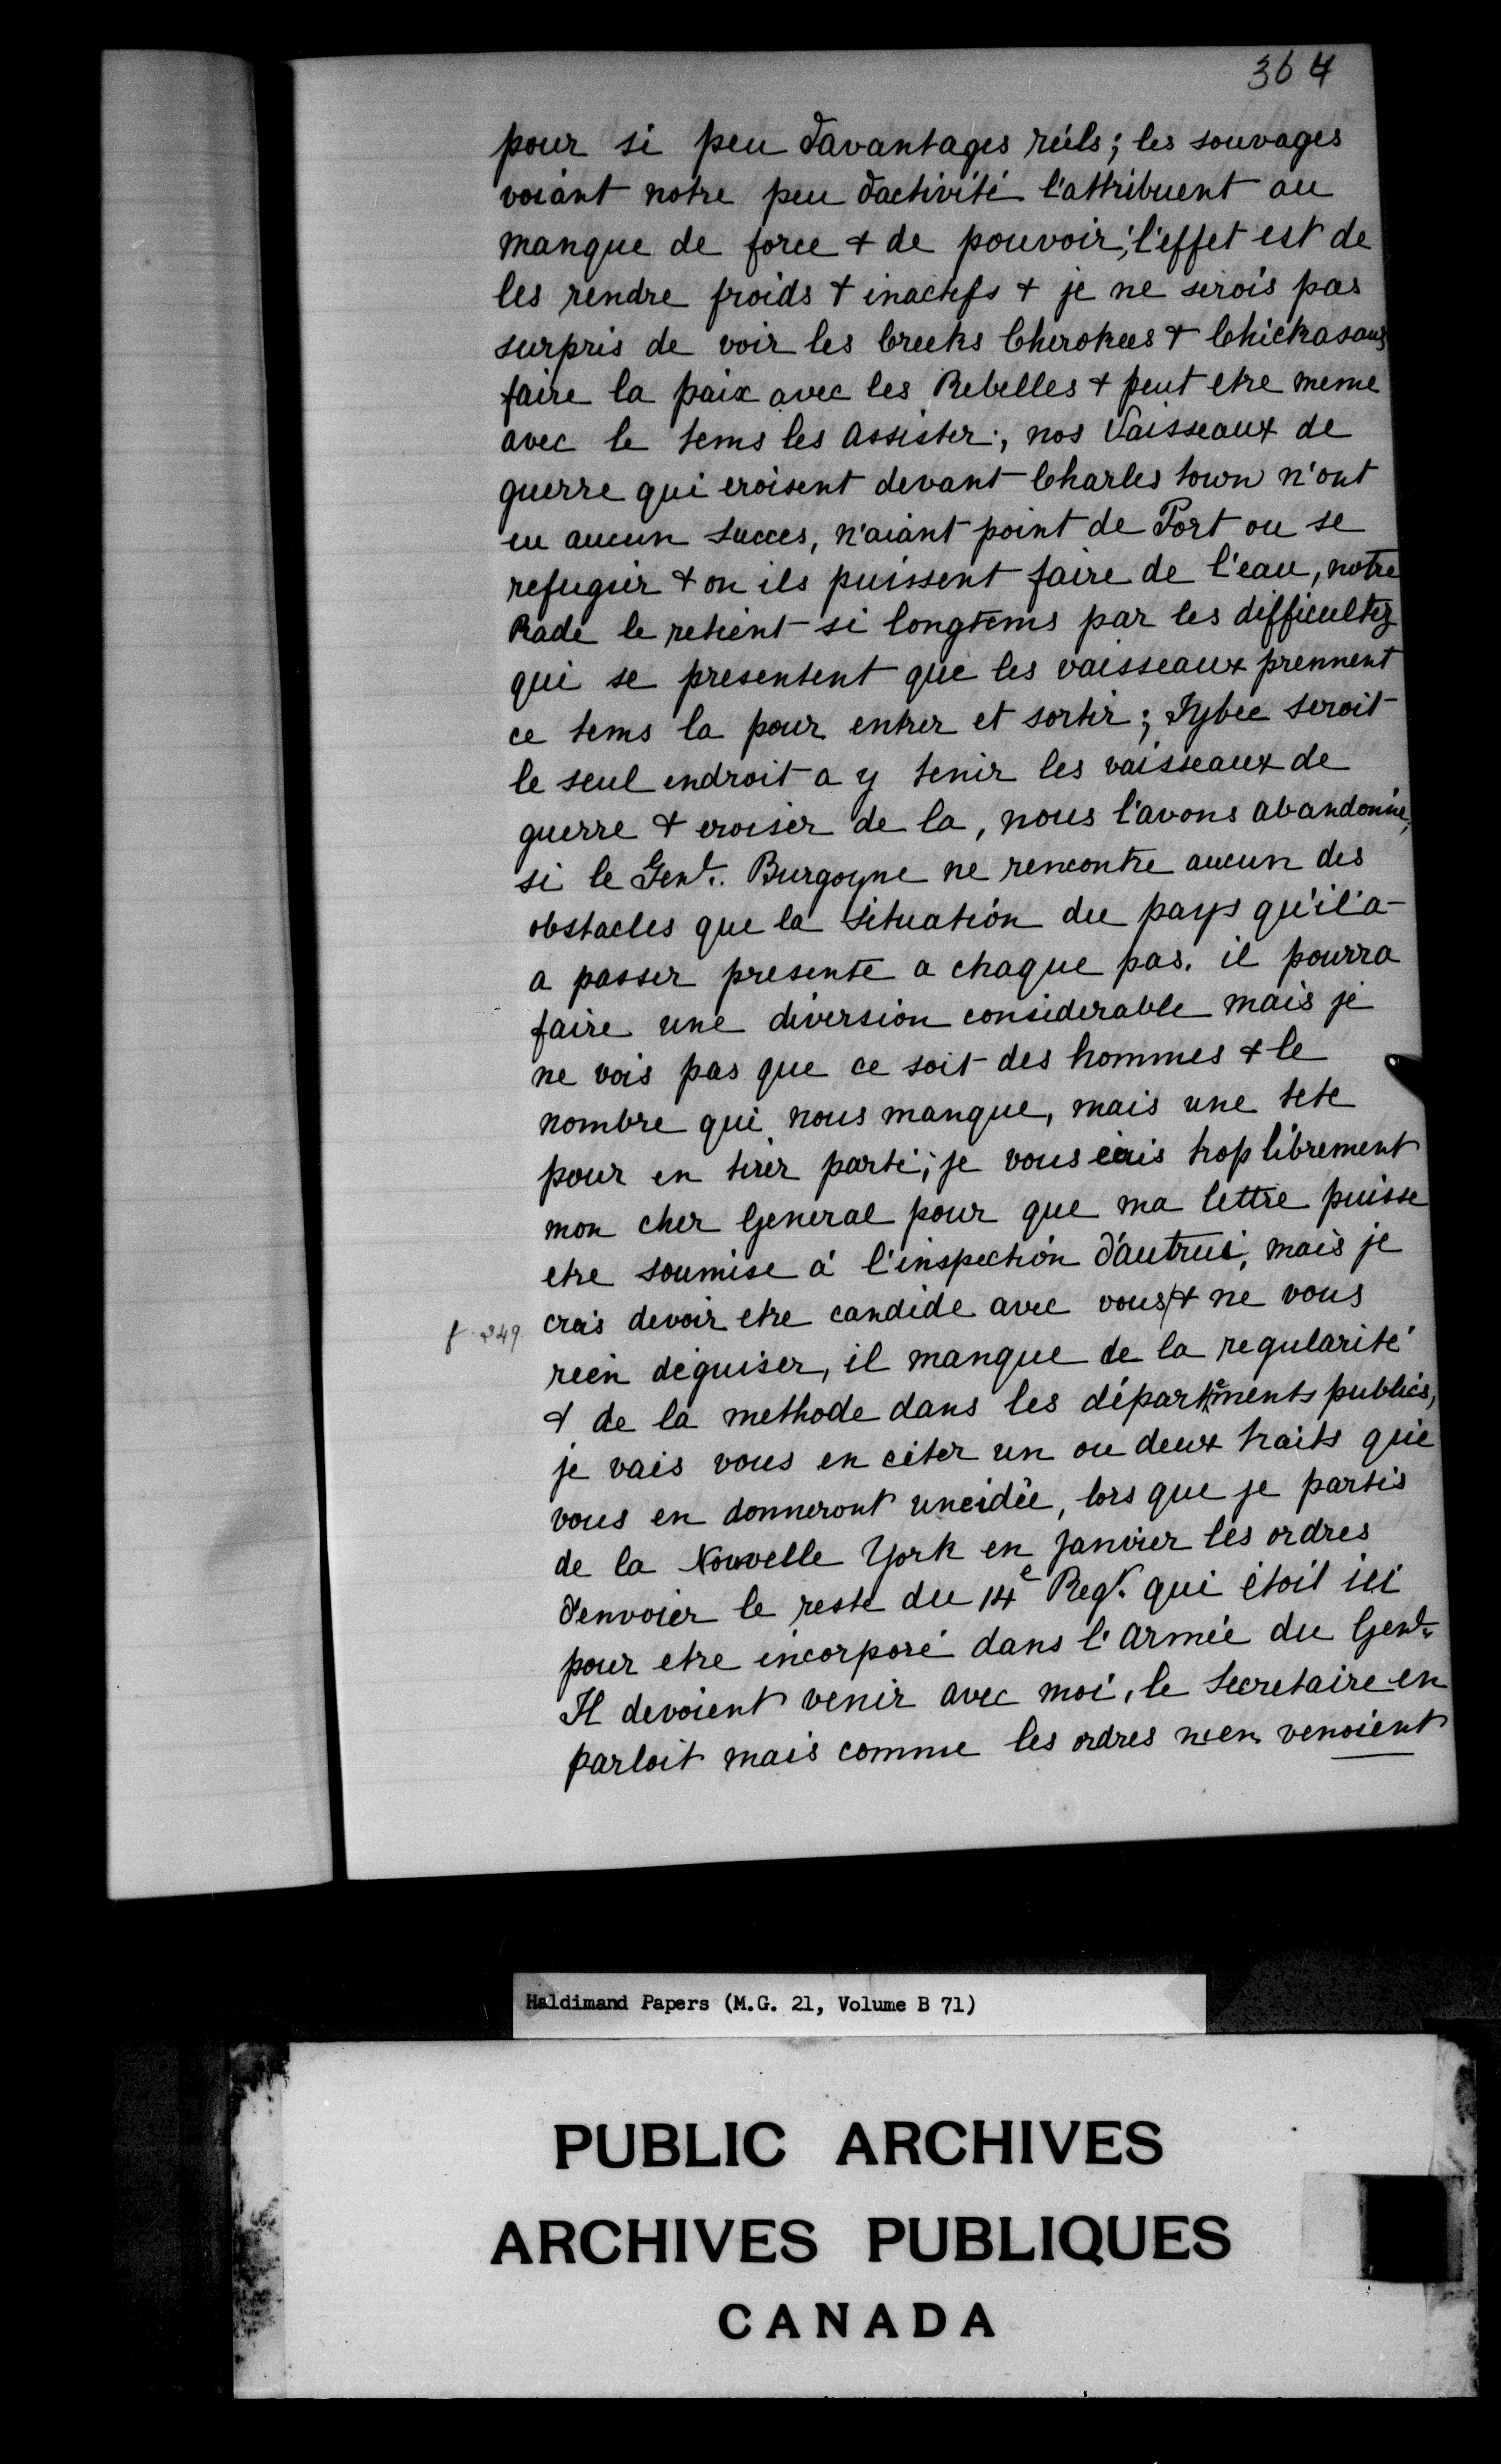 364
pour si peu davantages réels; les souvages
voiant notre peu dactivité l'attribuent au
manque de force & de pouvoir; l'effet est de
les rendre froids & inactifs & je ne serois pas
surpris de voir les Creeks Cherokees & Chickasaws
faire la paix avec les Rebelles & peut etre meme
avec le tems les assister; nos Vaisseaux de
guerre qui croisent devant Charles town n'ont
eu aucun succes, n'aiant point de Port ou se
refugier & ou ils puissent faire de l'eau, notre
Rade le retient si longtems par les difficultez
qui se presentent que les vaisseaux prennent
ce tems la pour entrer et sortir; Tybee seroit
le seul endroit a y tenir les vaisseaux de
guerre & croiser de la, nous l'avons abandonné;
si le Genl. Burgoyne ne rencontre aucun des
obstacles que la situation du pays qu'il a
a passer presente a chaque pas. il pourra
faire une diversion considerable mais je
ne vois pas que ce soit des hommes & le
nombre qui nous manque, mais une tete
pour en tirer parti; je vous écris trop librement
mon cher General pour que ma lettre puisse
etre soumise á l'inspection d'autrui, mais je
crois devoir etre candide avec vous & ne vous
f. 249
rien déguiser, il manque de la regularité
& de la methode dans les départements publics,
je vais vous en citer un ou deux traits qui
vous en donneront une idée, lors que je partis
de la Nouvelle York en Janvier les ordres
d'envoier le reste du 14e Regt. qui étoit ici
pour etre incorporé dans l'Armée du Genl.
Il devoient venir avec moi, le Secretaire en
parloit mais comme les ordres n'en venoient
Haldimand Papers (M.G. 21, Volume B 71)
PUBLIC ARCHIVES
ARCHIVES PUBLIQUES
CANADA